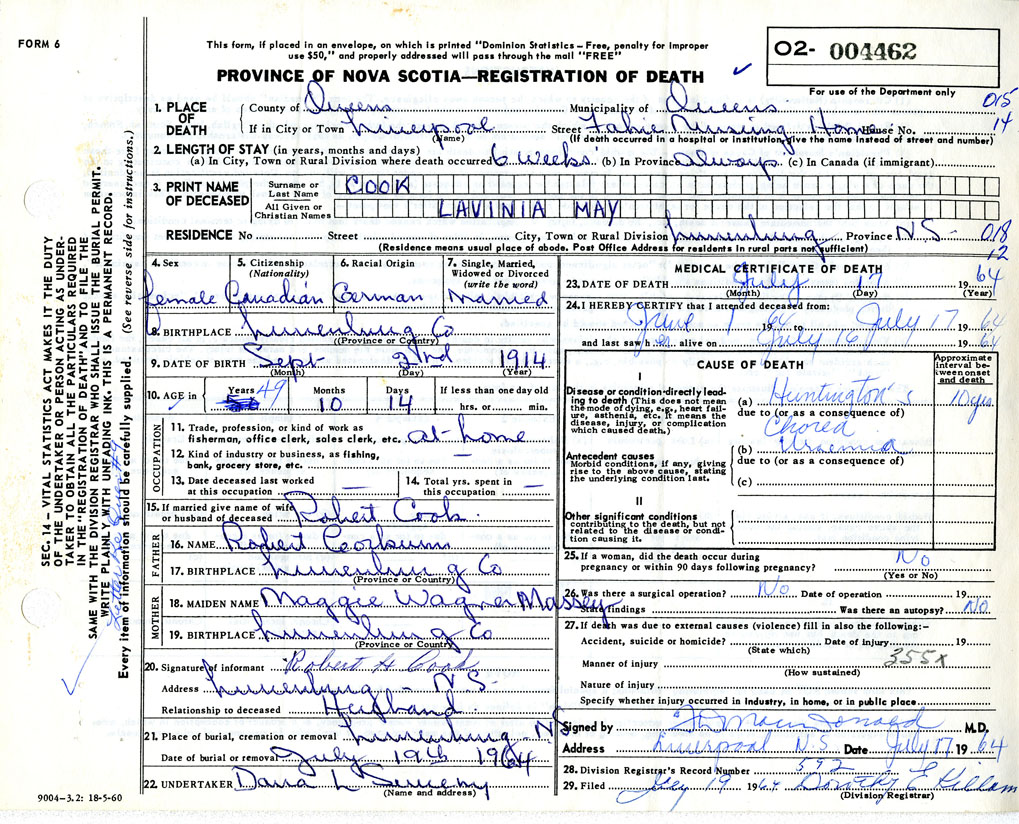 FORM 6
This form, if placed in an envelope, on which is printed "Dominion Statistics – Free, penalty for improper
use $50," and properly addressed will pass through the mail "FREE"
PROVINCE OF NOVA SCOTIA—REGISTRATION OF DEATH ✓
O2- 004462
For use of the Department only
015
14
1. PLACE OF DEATH
County of Queens Municipality of Queens
If in City or Town Liverpool Street Fahie Nursing Home House No.
(Name) (If death occurred in a hospital or institution, give the name instead of street and number)
2. LENGTH OF STAY (in years, months and days)
(a) In City, Town or Rural Division where death occurred 6 weeks (b) In Province always (c) In Canada (if immigrant)
3. PRINT NAME OF DECEASED
Surname or Last Name COOK
All Given or Christian Names LAVINIA MAY
RESIDENCE No Street City, Town or Rural Division Lunenburg Province N.S.
018
12
(Residence means usual place of abode. Post Office Address for residents in rural parts not sufficient)
4. Sex female
5. Citizenship (Nationality) Canadian
6. Racial Origin German
7. Single, Married, Widowed or Divorced (write the word) Married
8. BIRTHPLACE Lunenburg Co
(Province or Country)
9. DATE OF BIRTH Sept 2nd 1914
(Month) (Day) (Year)
10. AGE in Years 49 Months 10 Days 14 If less than one day old hrs. or min.
OCCUPATION
11. Trade, profession, or kind of work as
fisherman, office clerk, sales clerk, etc. at-home
12. Kind of industry or business, as fishing,
bank, grocery store, etc. —
13. Date deceased last worked
at this occupation —
14. Total yrs. spent in
this occupation —
15. If married give name of wife
or husband of deceased Robert Cook
FATHER
16. NAME Robert Corkum
17. BIRTHPLACE Lunenburg Co
(Province or Country)
MOTHER
18. MAIDEN NAME Maggie Wagner Massey
19. BIRTHPLACE Lunenburg Co
(Province or Country)
20. Signature of informant Robert H Cook
Address Lunenburg - N.S.
Relationship to deceased Husband
21. Place of burial, cremation or removal Lunenburg N.S
Date of burial or removal July 19th 1964
22. UNDERTAKER Dana L Sweeny
(Name and address)
MEDICAL CERTIFICATE OF DEATH
23. DATE OF DEATH July 17 1964
(Month) (Day) (Year)
24. I HEREBY CERTIFY that I attended deceased from:
June 1 1964 to July 17 1964
and last saw her alive on July 16 1964
CAUSE OF DEATH
Approximate interval between onset and death
I
Disease or condition directly leading to death (This does not mean
the mode of dying, e.g., heart failure, asthenia, etc. It means the
disease, injury, or complication
which caused death.)
(a) Huntington's 10 yrs
due to (or as a consequence of)
Chorea
(b) Uraemia
due to (or as a consequence of)
(c)
Antecedent causes
Morbid conditions, if any, giving
rise to the above cause, stating
the underlying condition last.
II
Other significant conditions
contributing to the death, but not
related to the disease or condition causing it.
25. If a woman, did the death occur during
pregnancy or within 90 days following pregnancy? No
(Yes or No)
26. Was there a surgical operation? No Date of operation 19
State findings Was there an autopsy? No
27. If death was due to external causes (violence) fill in also the following:–
Accident, suicide or homicide? Date of injury 19
(State which)
355x
Manner of injury
(How sustained)
Nature of injury
Specify whether injury occurred in industry, in home, or in public place
Signed by M.D.
Address Liverpool N.S Date July 17 1964
28. Division Registrar's Record Number 592
29. Filed July 19 1964 Dorothy E Killam
(Division Registrar)
SEC. 14 – VITAL STATISTICS ACT MAKES IT THE DUTY
OF THE UNDERTAKER OR PERSON ACTING AS UNDER-
TAKER TO OBTAIN ALL THE PARTICULARS REQUIRED
IN THE "REGISTRATION OF DEATH" AND TO FILE THE
SAME WITH THE DIVISION REGISTRAR WHO SHALL ISSUE THE BURIAL PERMIT.
WRITE PLAINLY WITH UNFADING INK. THIS IS A PERMANENT RECORD.
Every item of information should be carefully supplied. (See reverse side for instructions.)
9004–3.2: 18-5-60